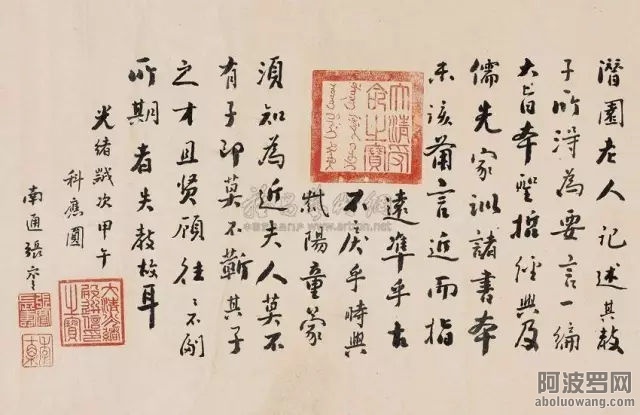 潛園老人記述其教
子所得為要言一編
大旨本聖哲經典及
儒先家訓諸書本
末該備言近而指
遠準乎古
不戾乎時與
陽童蒙
須知為近夫人莫不
有子即莫不蘄其子
之才且賢顧往〻不副
所期者失教故耳
光緒歲次甲午
科應圓
南通張謇
大清受命之寶
阿波罗网
aboluowang.com